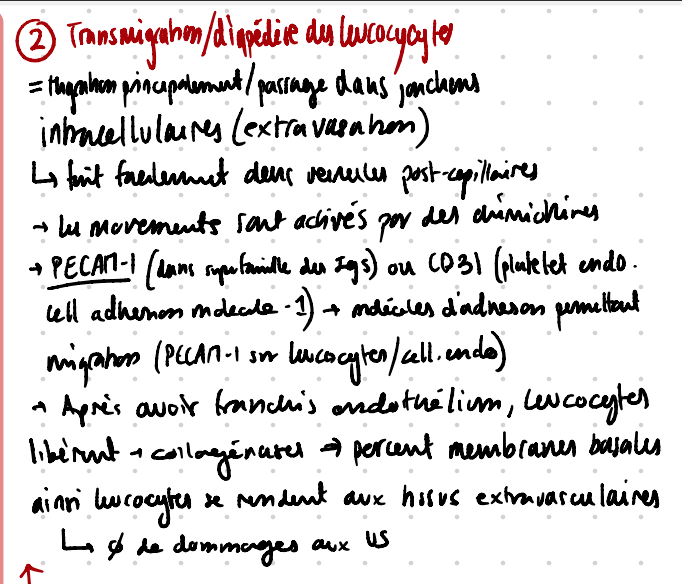 ② Transmigration/diapédèse des leucocytes
= Migration principalement/passage dans jonctions
intracellulaires (extravasation)
↳ fait facilement dans veinules post-capillaires
→ les movements sont activés par des chimiokines
→ PECAM-1 (dans superfamille des Igs) ou CD31 (platelet endo.
cell adhesion molecule-1) → molécules d'adhesion permettant
migration (PECAM-1 sur leucocytes/cell.endo)
→ Après avoir franchis endothélium, leucocytes
libèrent → collagénases → percent membranes basales
ainsi leucocytes se rendent aux tissus extravasculaires
↳ ∅ de dommages aux